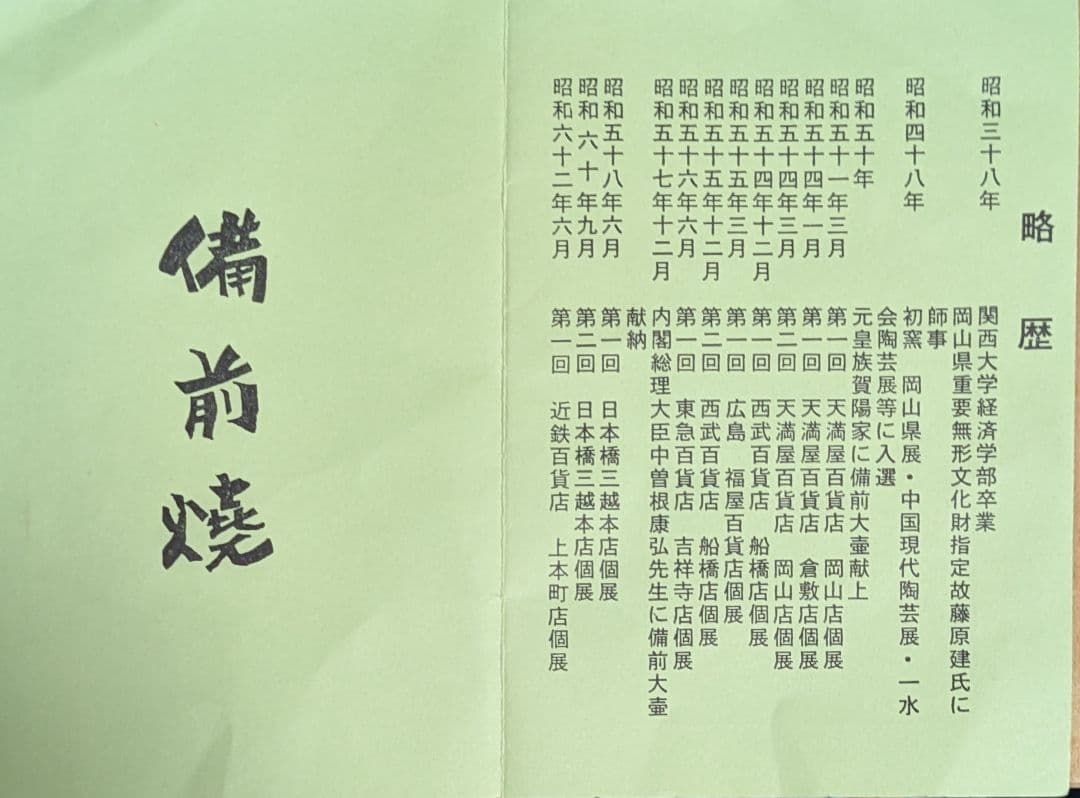 略歴
昭和三十八年 関西大学経済学部卒業
岡山県重要無形文化財指定故藤原建氏に
師事
昭和四十八年 初窯 岡山県展・中国現代陶芸展・一水
会陶芸展等に入選
昭和五十年 元皇族賀陽家に備前大壷献上
昭和五十一年三月 第一回 天満屋百貨店 岡山店個展
昭和五十四年一月 第一回 天満屋百貨店 倉敷店個展
昭和五十四年三月 第二回 天満屋百貨店 岡山店個展
昭和五十四年十二月 第一回 西武百貨店 船橋店個展
昭和五十五年三月 第一回 広島 福屋百貨店個展
昭和五十五年十二月 第二回 西武百貨店 船橋店個展
昭和五十六年六月 第一回 東急百貨店 吉祥寺店個展
昭和五十七年十二月 内閣総理大臣中曽根康弘先生に備前大壷
献納
昭和五十八年六月 第一回 日本橋三越本店個展
昭和六十年九月 第二回 日本橋三越本店個展
昭和六十二年六月 第一回 近鉄百貨店 上本町店個展
備前燒